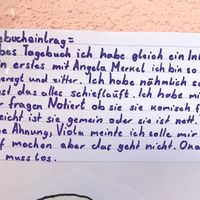 ebucheintrag =
bes Tagebuch ich habe gleich ein In
n erstes mit Angela Merkel ich bin so
eregt und zitter. Ich habe nähmlich s
st das alles schiefläuft. Ich habe mi
r fragen Notiert ob sie sie komisch f
eicht ist sie gemein oder sie ist nett.
e Ahnung, Viola meinte ich solle mir
f machen aber das geht nicht. Oka
muss los.